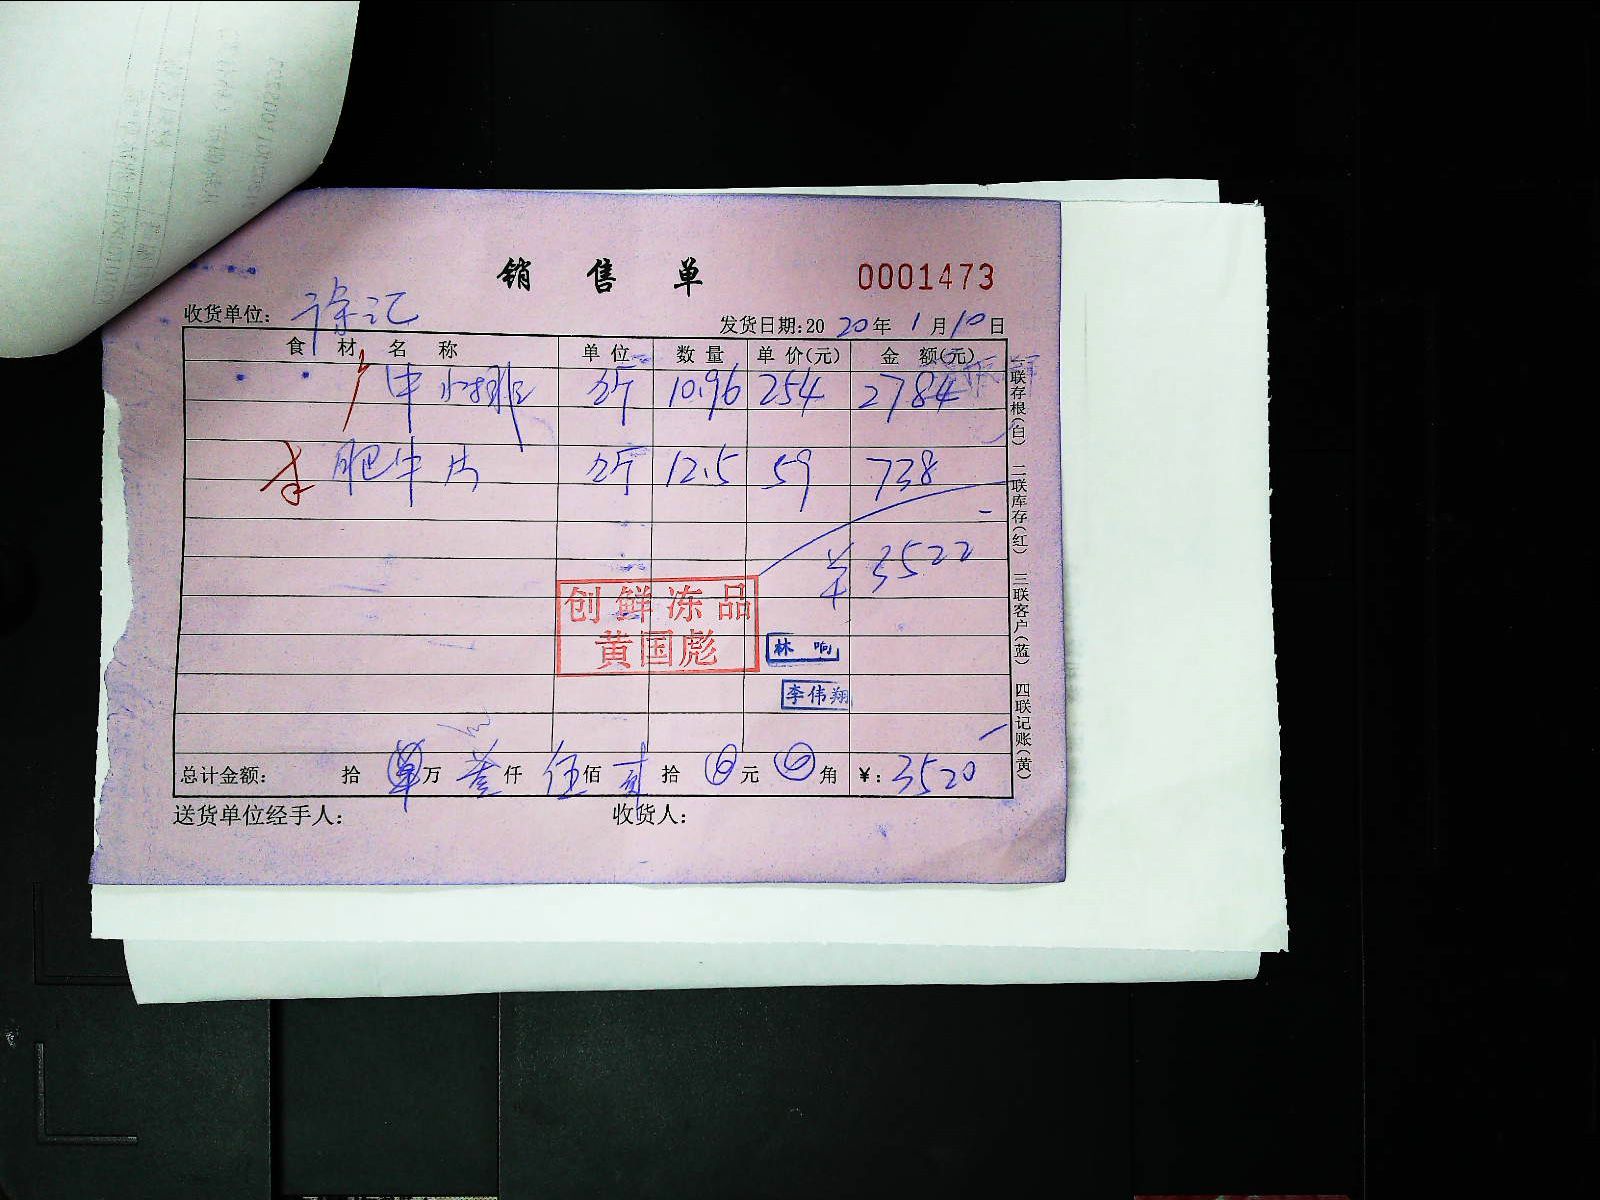 销售单
0001473
收货单位: 徐记
发货日期:2020年1月10日
食材名称 单位 数量 单价(元) 金额(元)
牛小排 斤 10.96 254 2784
肥牛片 斤 12.5 59 738
¥3522
创鲜冻品
黄国彪
林响
李伟翔
总计金额: 拾 万 叁仟 伍佰 贰拾 0元 0角 ¥:3520
送货单位经手人: 收货人:
一联存根(白) 二联库存(红) 三联客户(蓝) 四联记账(黄)